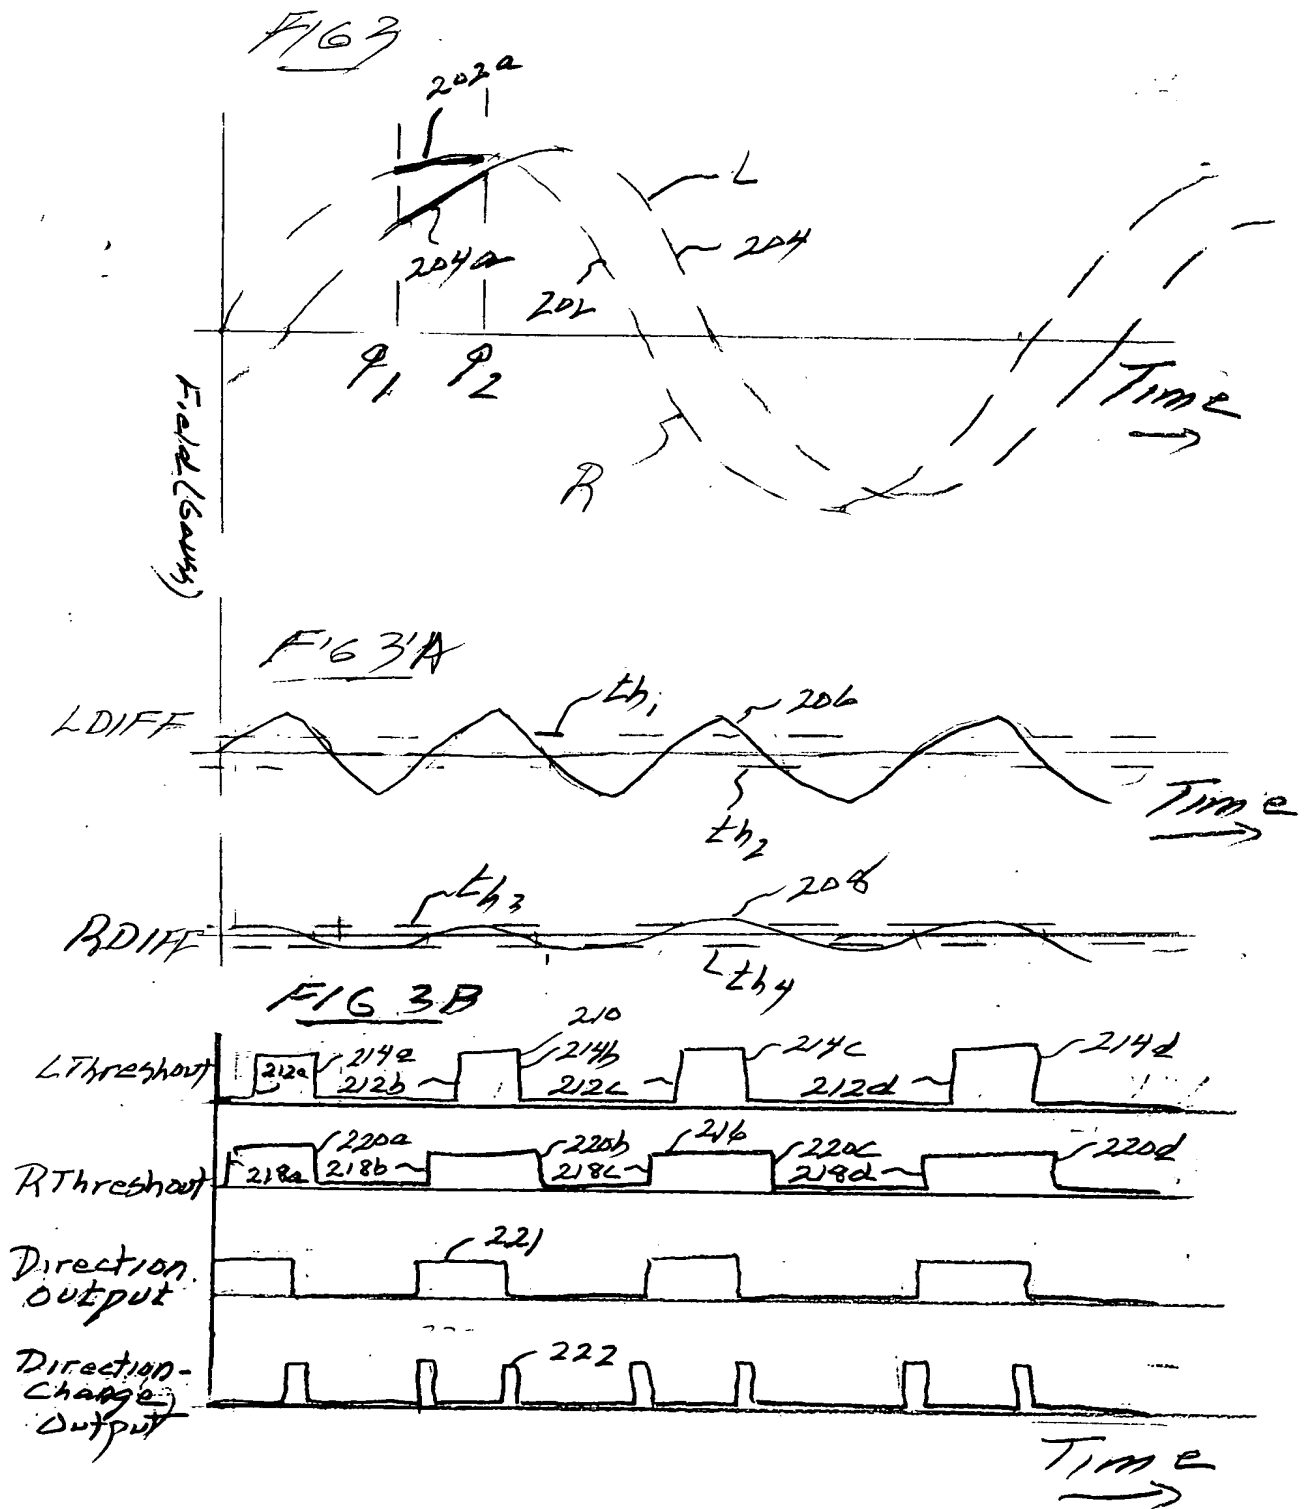 FIG 3
202a
L
204
204a
202
φ1 φ2
Time
R
Field (Gauss)
FIG 3A
LDIFF
th1
206
Time
th2
th3
208
RDIFF
th4
FIG 3B
210
LThreshout
212a
214a
212b
214b
212c
214c
212d
214d
RThreshout
218a
220a
218b
220b
218c
216
220c
218d
220d
Direction
output
221
Direction-
Change
Output
222
Time